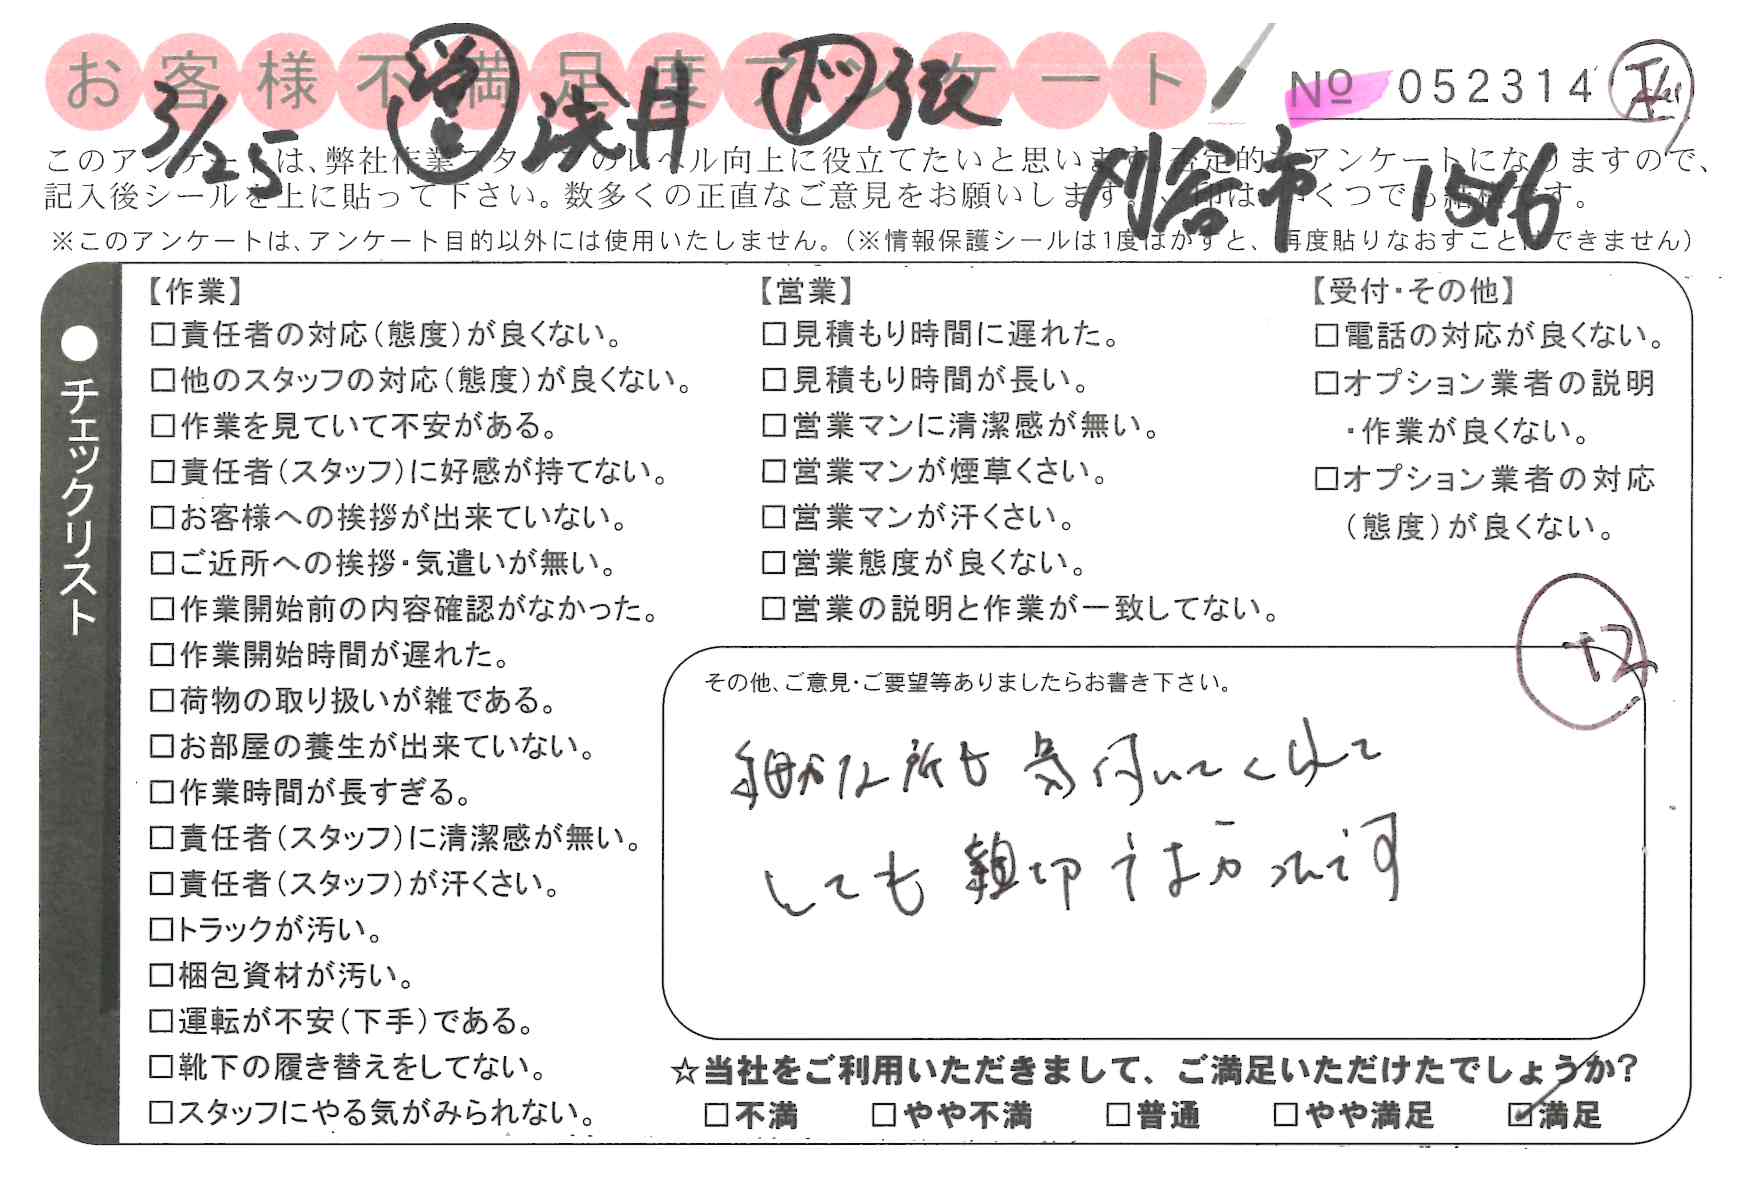 お客様不満足度アンケート
№ 052314
3/25 営 浅井 ド 弦
刈谷市 1516
このアンケートは、弊社作業スタッフのレベル向上に役立てたいと思います。否定的なアンケートになりますので、
記入後シールを上に貼って下さい。数多くの正直なご意見をお願いします。✓印はいくつでも結構です。
※このアンケートは、アンケート目的以外には使用いたしません。(※情報保護シールは1度はがすと、再度貼りなおすことはできません)
●チェックリスト
【作業】
□責任者の対応(態度)が良くない。
□他のスタッフの対応(態度)が良くない。
□作業を見ていて不安がある。
□責任者(スタッフ)に好感が持てない。
□お客様への挨拶が出来ていない。
□ご近所への挨拶・気遣いが無い。
□作業開始前の内容確認がなかった。
□作業開始時間が遅れた。
□荷物の取り扱いが雑である。
□お部屋の養生が出来ていない。
□作業時間が長すぎる。
□責任者(スタッフ)に清潔感が無い。
□責任者(スタッフ)が汗くさい。
□トラックが汚い。
□梱包資材が汚い。
□運転が不安(下手)である。
□靴下の履き替えをしてない。
□スタッフにやる気がみられない。
【営業】
□見積もり時間に遅れた。
□見積もり時間が長い。
□営業マンに清潔感が無い。
□営業マンが煙草くさい。
□営業マンが汗くさい。
□営業態度が良くない。
□営業の説明と作業が一致してない。
【受付・その他】
□電話の対応が良くない。
□オプション業者の説明
・作業が良くない。
□オプション業者の対応
(態度)が良くない。
+2
その他、ご意見・ご要望等ありましたらお書き下さい。
細かな所も気付いてくれて
とても親切でよかったです
☆当社をご利用いただきまして、ご満足いただけたでしょうか?
□不満 □やや不満 □普通 □やや満足 ☑満足